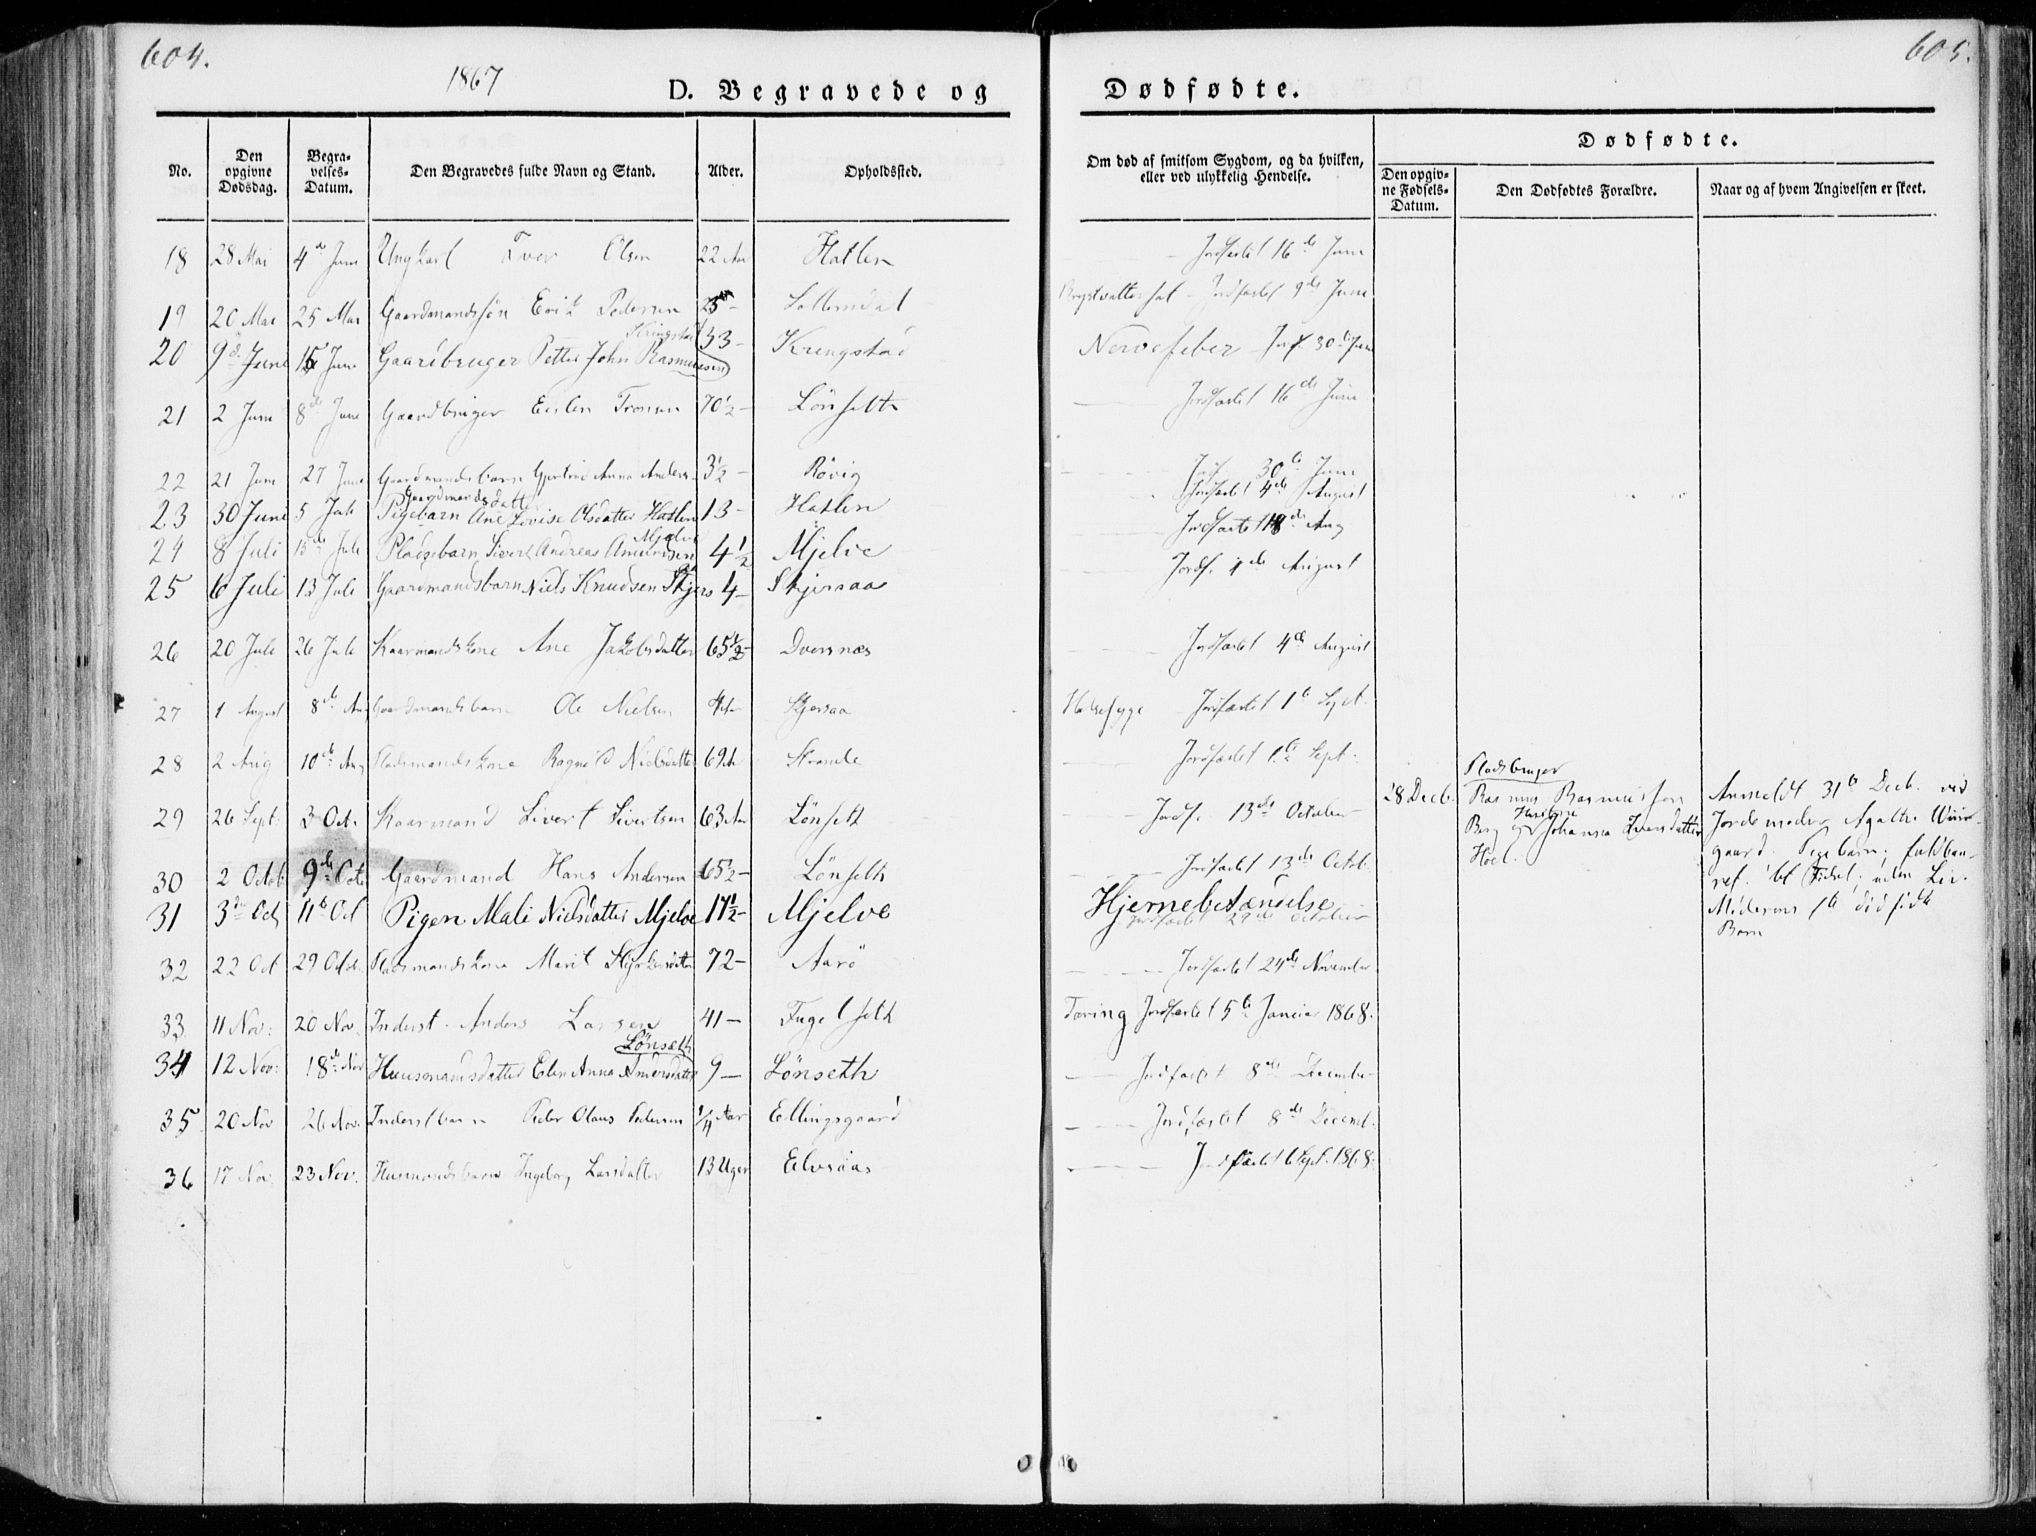 604.
1867
D. Begravede og
No.
Den opgivne Dødsdag.
Begravelses-Datum.
Den Begravedes fulde Navn og Stand.
Alder.
Opholdssted.
18 28 Mai 4de Juni Ungkarl Iver Olsen 22 Aar Hatlen
19 20 Mai 25 Mai Gaardmandssøn Erik Pedersen 25 - Sollemdal
Kringstad
20 9de Juni 15 Juni Gaardbruger Petter John Rasmussen 33 - Kringstad
21 2 Juni 8de Juni Gaardbruger Erlen Tronsen 70½ - Lønseth
22 21 Juni 27 Juni Gaardmandsbarn Gjertrud Anna Anders. 3½ - Røvig
Gaardmandsdatter
23 30 Juni 5 Juli Pigebarn Ane Lovise Olsdatter Hatlen 13 - Hatlen
Mjelve
24 8 Juli 15de Juli Pladsebarn Sivert Andreas Amundsen 4½ Mjelve
25 6 Juli 13 Juli Gaardmandsbarn Niels Knudsen Skjersaa 4 - Skjersaa
26 20 Juli 26 Juli Kaarmandskone Ane Jakobsdatter 65½ - Dversnæs
27 1 August 8de Aug Gaardmandsbarn Ole Nielsen Skjersaa
28 2 Aug 10de Aug Pladsmandskone Ragnild Nielsdatter 69 Strande
29 26 Sept. 3 Oct. Kaarmand Sivert Sivertsen 63 Aar Lønseth
30 2 Octob 9de Octb Gaardmand Hans Andersen 65½ - Lønseth
31 3de Oct 11te Oct Pigen Mali Nielsdatter Mjelve 17½ - Mjelve
32 22 Oct 29 Octob. Pladsmandskone Marit Styrkersdatter 72 - Aarø
33 11 Nov: 20 Nov. Inderst. Anders Larsen 41 - Fugelseth
Lønseth
34 12 Nov: 18de Nov Huusmandsdatter Elen Anna Andersdatter 9 - Lønseth
35 20 Nov 26 Nov. Inderstbarn Peder Olaus Pedersen ¼ Aar Ellingsgaard
36 17 Nov. 23 Nov. Husmandsbarn Ingeborg Larsdatter 13 Uger Elvsaas
605.
Dødfødte.
Om død af smitsom Sygdom, og da hvilken, eller ved ulykkelig Hendelse.
Dødfødte.
Den opgivne Fødsels-Datum.
Den Dødfødtes Forældre.
Naar og af hvem Angivelsen er skeet.
- Jordfæstet 16de Juni
Brystvattersot - Jordfæstet 9de Juni
Nervefeber - Jrf. 30te Juni
Jordfæstet 16de Juni
Jordf. 30te Juni
Jordfæstet 4de August
Jordfæstet 18de Aug
Jordf. 4de August
Jordfæstet 4de August
Halssyge Jordfæstet 1te Sept.
Jordfæstet 1te Sept.
Jordf. 13de October
Jordfæstet 13de Octob.
Hjernebetændelse
Jordfæstet 27de October
Jordfæstet 24de November
Tæring Jordfæstet 5te Januar 1868.
Jordfæstet 8de December
Jordfæstet 8de Decemb.
Jordfæstet 6 Sept. 1868.
28 Decb.
Pladsbruger
Rasmus Rasmussen
Hustrue
Berg og Johanna Iversdatter
Hoel.
Anmeldt 31te Decb. ved
Jordemoder Agathe Wiirgaard.
Pigebarn; fuldbaaret.
uden Liv.
Moderens dødfødte
Barn